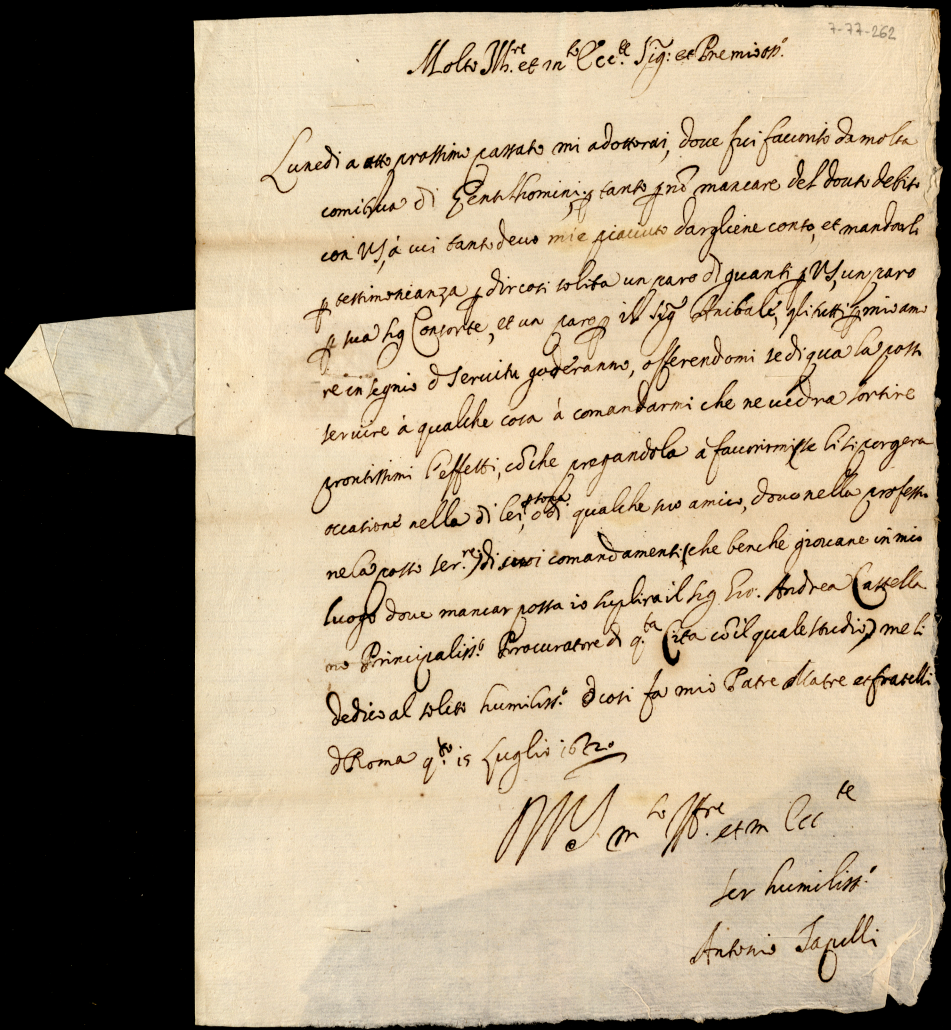 7-77-262
Molto Ill.re et m.to Ecc.te Sig.r et Pne mio oss.o
Lunedi a otto prossimo passato mi adottorai, doue fui fauorito da molta
comitiua di Gentilhomini; p tanto p nõ mancare del douto debito
con VS, à cui tanto deuo mi è piaciuto dargliene conto, et mandarli
p testimonianza p dir cosi solita un paro di guanti p VS, un paro
p sua Sig Consorte, et un paro p il Sig Anibale, gli tutti p mio amo
re in segnio d seruitu goderanno, offerendomi se di qua la posso
seruire à qualche cosa à comandarmi che ne uedra sortire
prontissimi l'effetti, cõ che pregandola à fauorirmi se li si porgera
occasione nella di lei, o di qualche suo amico, doue nella professio
ne la posso ser.re di suoi comandamenti (che benche giouane in mio
luogo doue mancar possa io suplira il Sig Gio. Andrea Castella
no Principaliss.o Procuratore di q.ta Citta cõ il quale studio) me li
dedico al solito humiliss.o et cosi fa mio Patre Matre et fratelli
d Roma q.to 15 Luglio 1622
D VS. m.to Ill.re et m Ecc.te
ser humiliss.o
Antonio